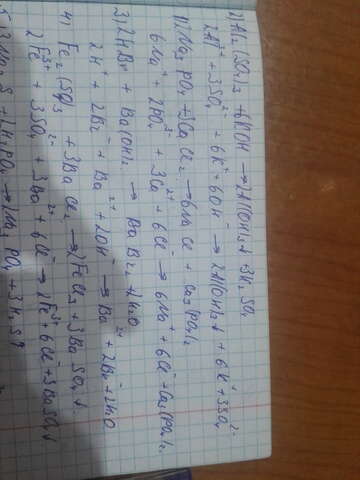 2) Al₂(SO₄)₃ + 6KOH → 2Al(OH)₃↓ + 3K₂SO₄
2Al³⁺ + 3SO₄²⁻ + 6K⁺ + 6OH⁻ → 2Al(OH)₃↓ + 6K⁺ + 3SO₄²⁻
1) 2Na₃PO₄ + 3CaCl₂ → 6NaCl + Ca₃(PO₄)₂
6Na⁺ + 2PO₄³⁻ + 3Ca²⁺ + 6Cl⁻ → 6Na⁺ + 6Cl⁻ + Ca₃(PO₄)₂
3) 2HBr + Ba(OH)₂ → BaBr₂ + 2H₂O
2H⁺ + 2Br⁻ + Ba²⁺ + 2OH⁻ → Ba²⁺ + 2Br⁻ + 2H₂O
4) Fe₂(SO₄)₃ + 3BaCl₂ → 2FeCl₃ + 3BaSO₄↓
2Fe³⁺ + 3SO₄²⁻ + 3Ba²⁺ + 6Cl⁻ → 2Fe³⁺ + 6Cl⁻ + 3BaSO₄↓
5) 3Na₂S + 2H₃PO₄ → 2Na₃PO₄ + 3H₂S↑